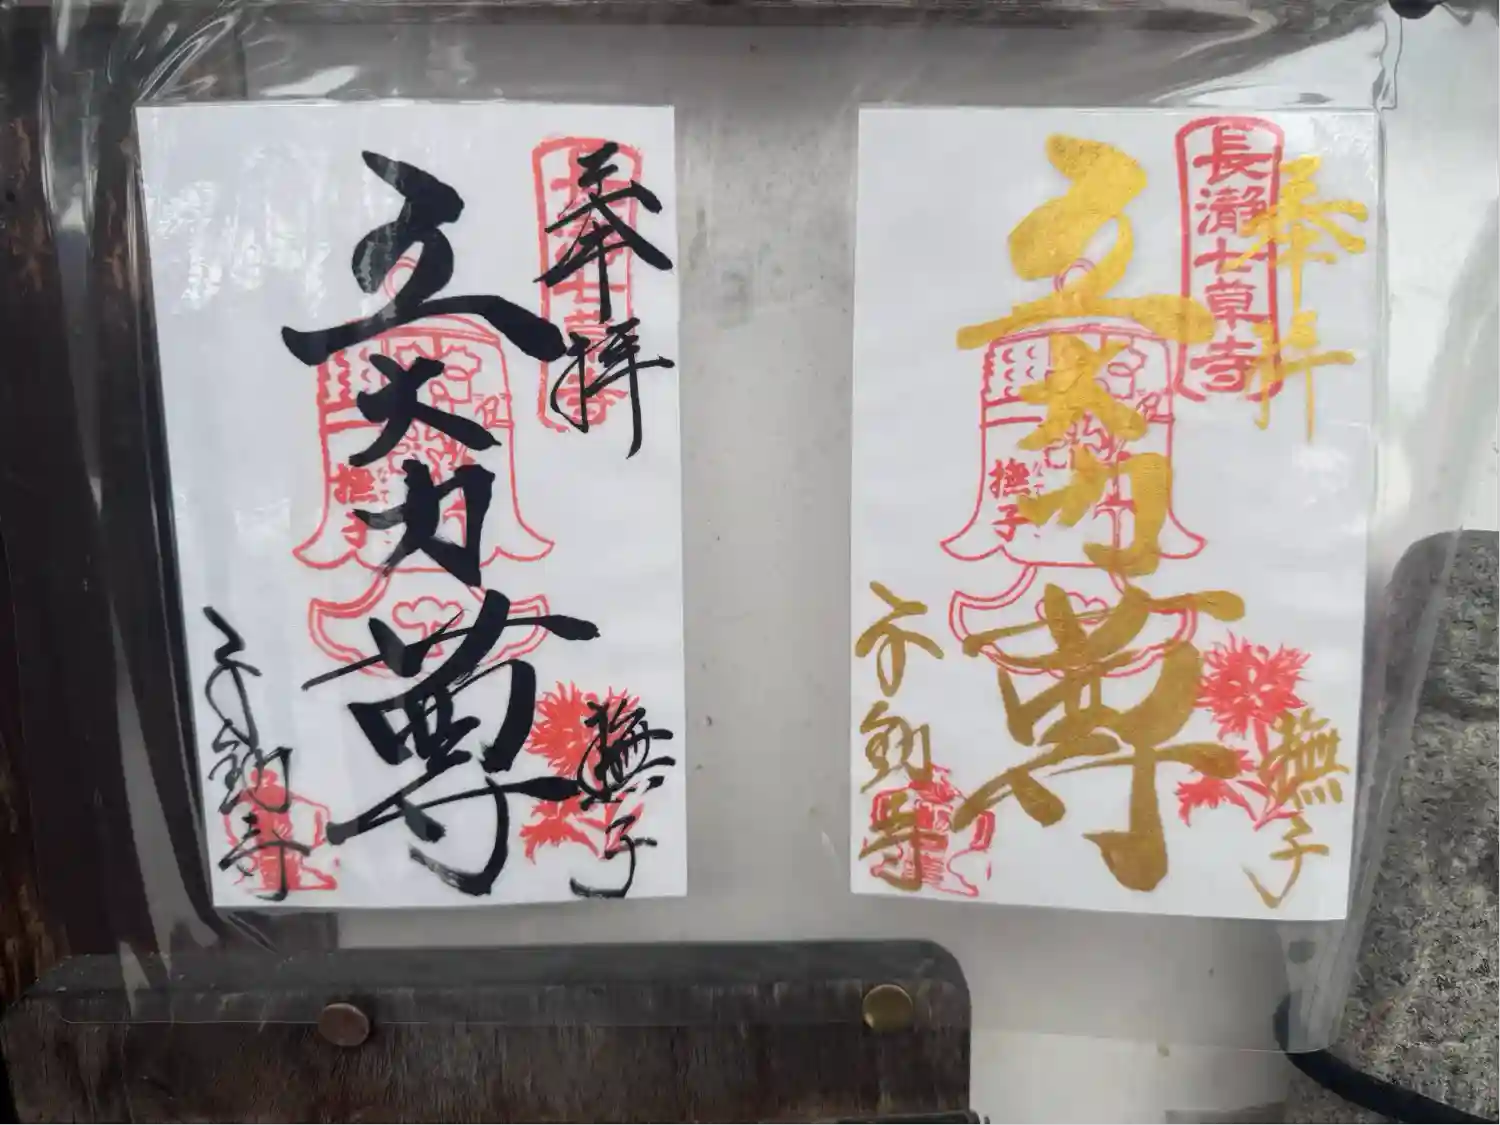 長瀞七草寺
奉拝
撫子
五大力尊
撫子
不動寺
長瀞七草寺
奉拝
撫子
五大力尊
撫子
不動寺